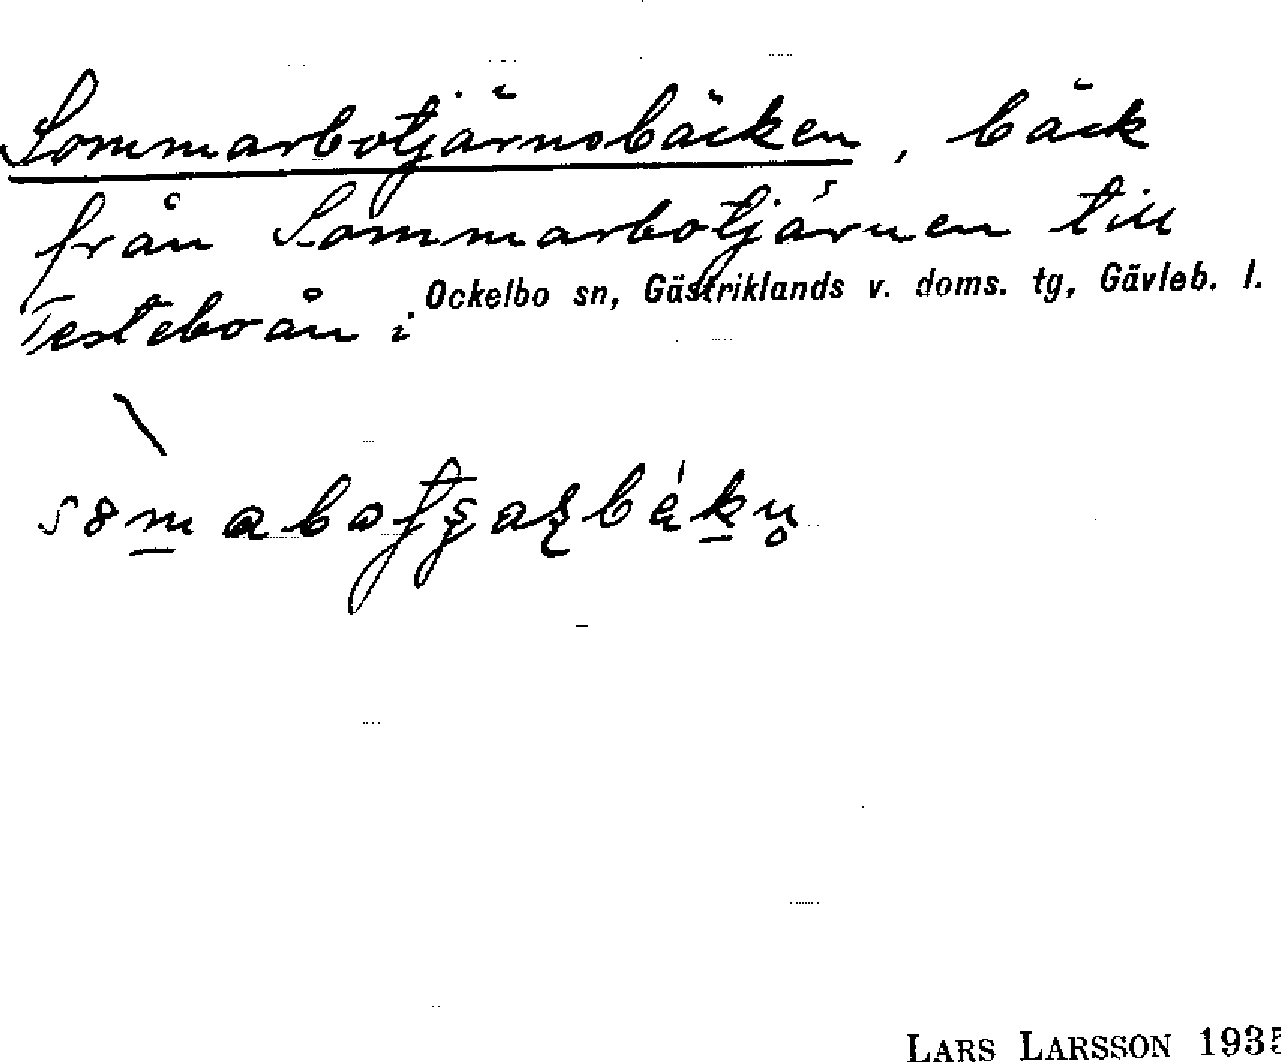 Sommarbotjärnsbäcken, bäck
från Sommarbotjärnen till
Testeboån i Ockelbo sn, Gästriklands v. doms. tg, Gävleb. l.
LARS LARSSON 1935